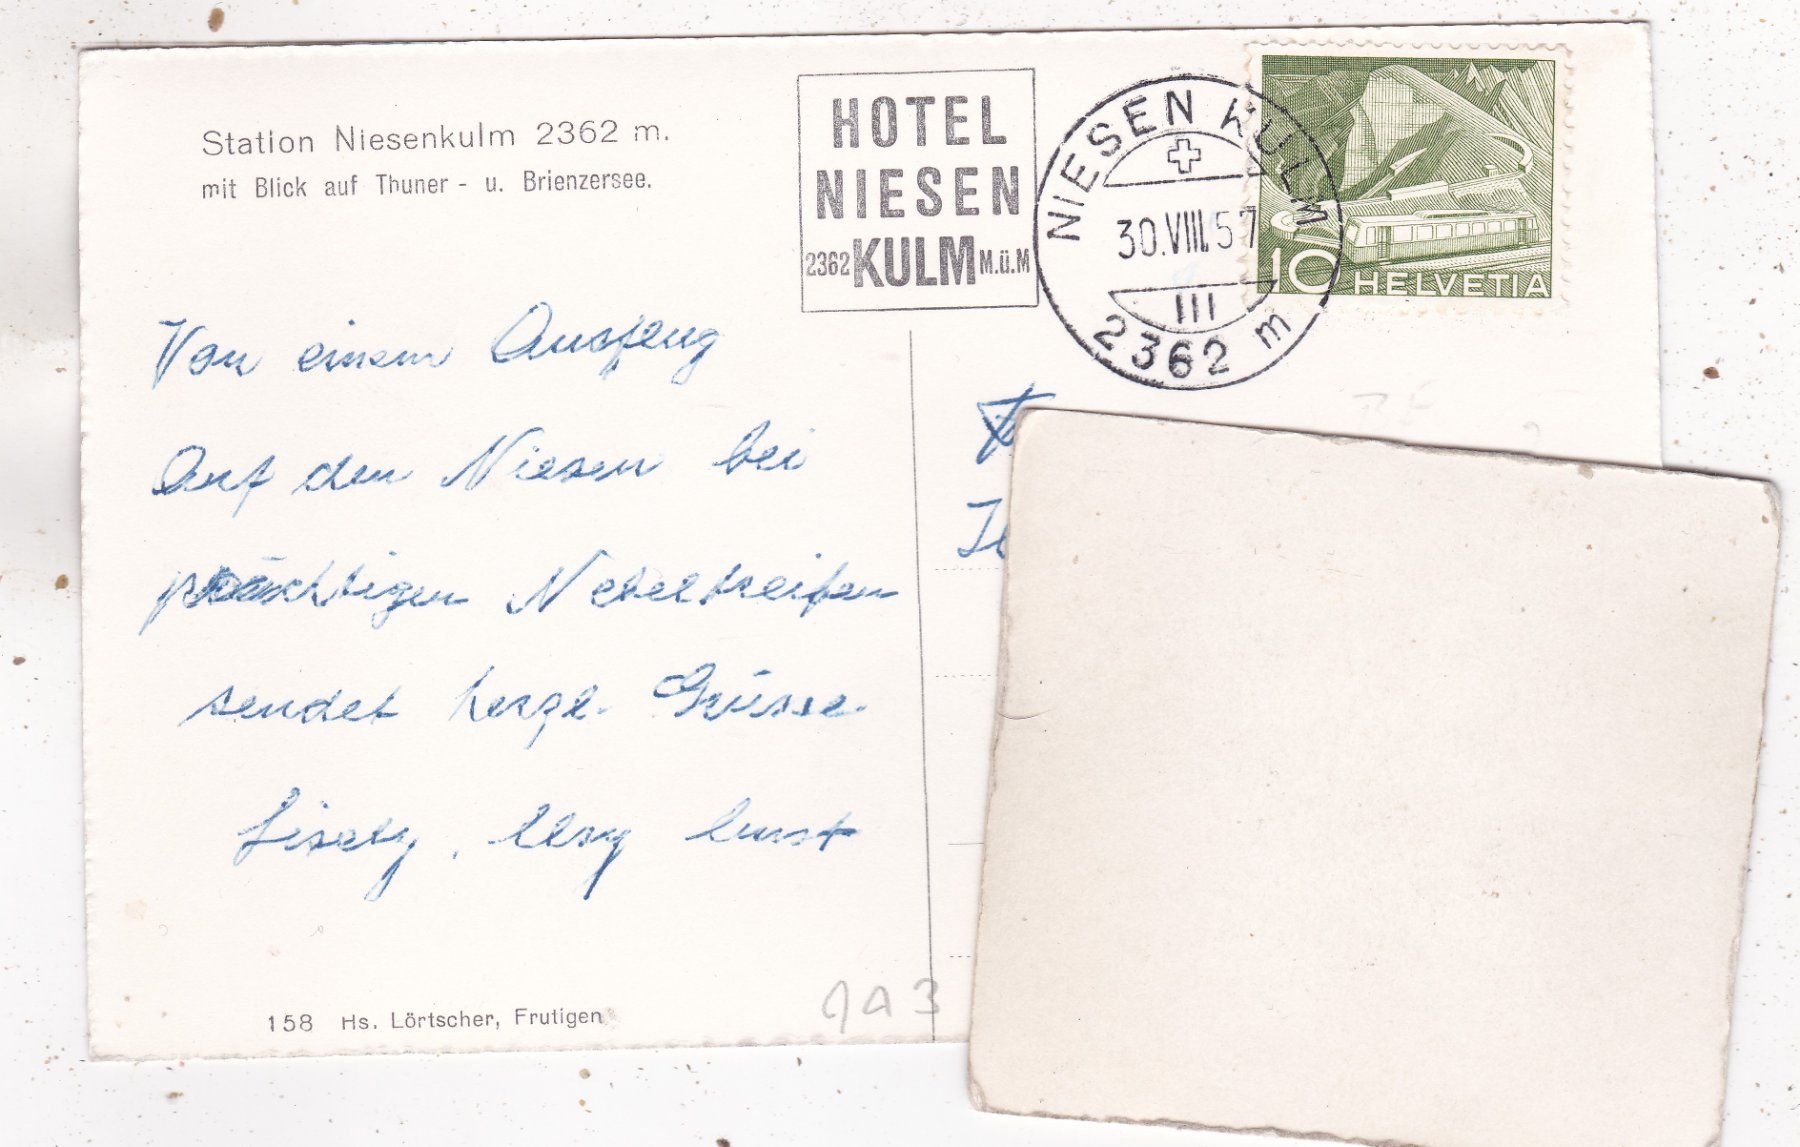 Station Niesenkulm 2362 m.
mit Blick auf Thuner- u. Brienzersee.
HOTEL
NIESEN
2362 KULM M.ü.M
NIESEN KULM
30.VIII.57
III
2362 m
10 HELVETIA
Von einem Ausflug
Auf den Niesen bei
prächtigen Nebeltreifen
sendet herzl. Grüsse
158 Hs. Lörtscher, Frutigen